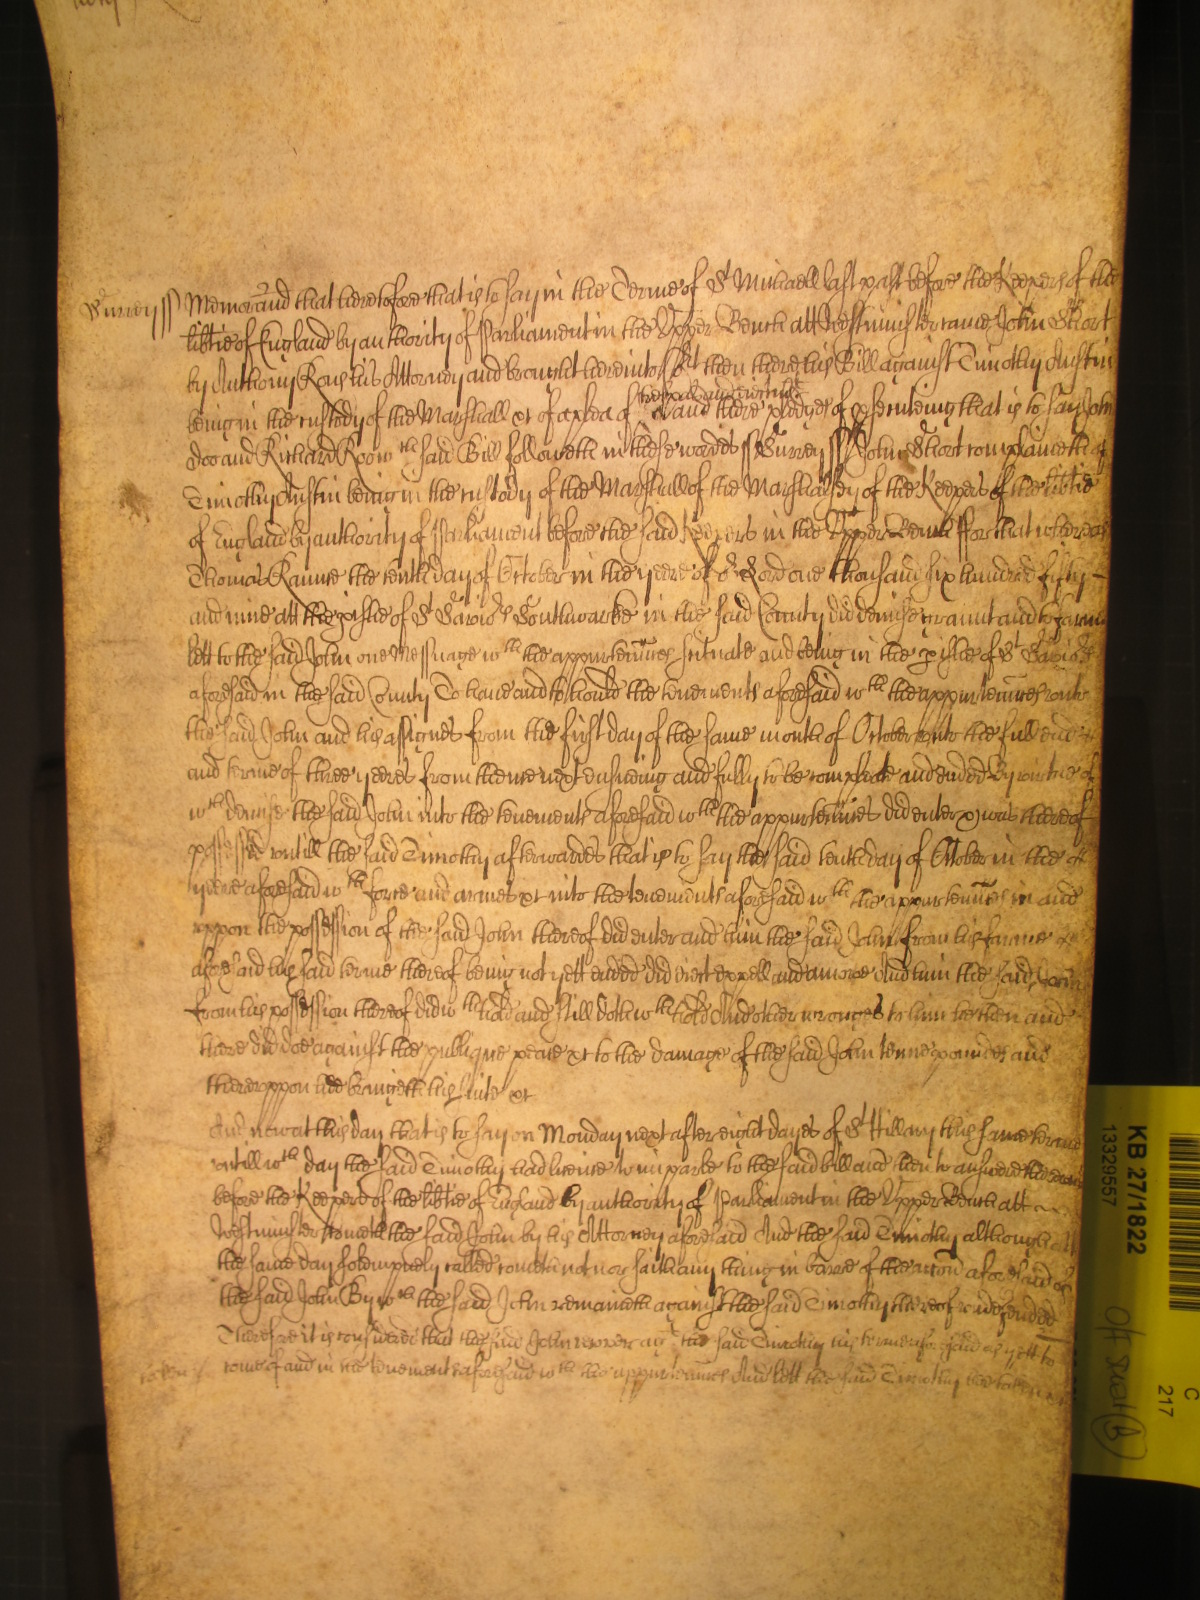 Surrey ss Memorand that heretofore that is to say in the Terme of St Michaell last past before the Keepers of the
libtie of England by authority of Parliament in the Upper Bench att Westminster came John Short
by Anthony Rous his Attorney and brought here into the Court then there his Bill against Timothy Austin
being in the custody of the Marshall &c of a plea of trespas and eiectmt and there pledges of psecuteing that is to say John
Doo and Richard Roo wch said Bill followeth in these wordes ss Surrey ss John Short complaineth of
Timothy Austin being in the custody of the Marshall of the Marshalsey of the Keepers of the libtie
of England by authority of Parliament before the said Keepers in the Upper Bench ffor that whereas
Thomas the tenth day of October in the yeere of or Lord one thousand six hundred fifty
and nine att the pishe of St Savior Southwarke in the said County did demise graunt and to farme
lett to the said John one Messuage wth the appurtennces scituate and being in the pishe of St Savior
aforesaid in the said County To have and to hould the tenements aforesaid wth the appurtennces unto
the said John and his assignes from the first day of the same month of October unto the full end
and terme of three yeeres from thence next ensueing and fully to be compleate and ended By vertue of
wch demise the said John into the tenements aforesaid wth the appurtennces did enter & was thereof
possessed untill the said Timothy afterwardes that is to say the said tenth day of October in the
yeere aforesaid wth force and armes &c into the tenements aforesaid wth the appurtennces in and
uppon the possession of the said John thereof did enter and him the said John from his farme
aforesaid his said terme thereof being not yett ended did eiect expell and amove And him the said John
from his possession thereof did wthhold and still doth wthhold And other wronges to him he then and
there did doe against the publique peace &c to the damage of the said John tenne poundes and
thereuppon hee bringeth his suite &c
And now at this day that is to say on Monday next after eight dayes of St Hillary this same terme
untill wch day the said Timothy had licence to imparle to the said bill and then to answere thereunto
before the Keepers of the libtie of England by authority of Parliament in the Upper Bench att
Westminster cometh the said John by his Attorney aforesaid And the said Timothy although att
the same day solemply called cometh not nor saith any thing in barre of the accon aforesaid of
the said John By wch the said John remaineth against the said Timothy thereof undefended
Therefore it is considered that the said John recover agt the said Timothy his terme aforesaid as yett to
come of and in the tenements aforesaid wth the appurtennces And lett the said Timothy bee taken
KB 27/1822
13329557
C
217